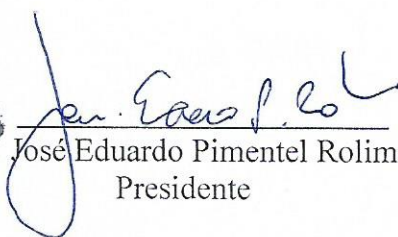 José Eduardo Pimentel Rolim
Presidente